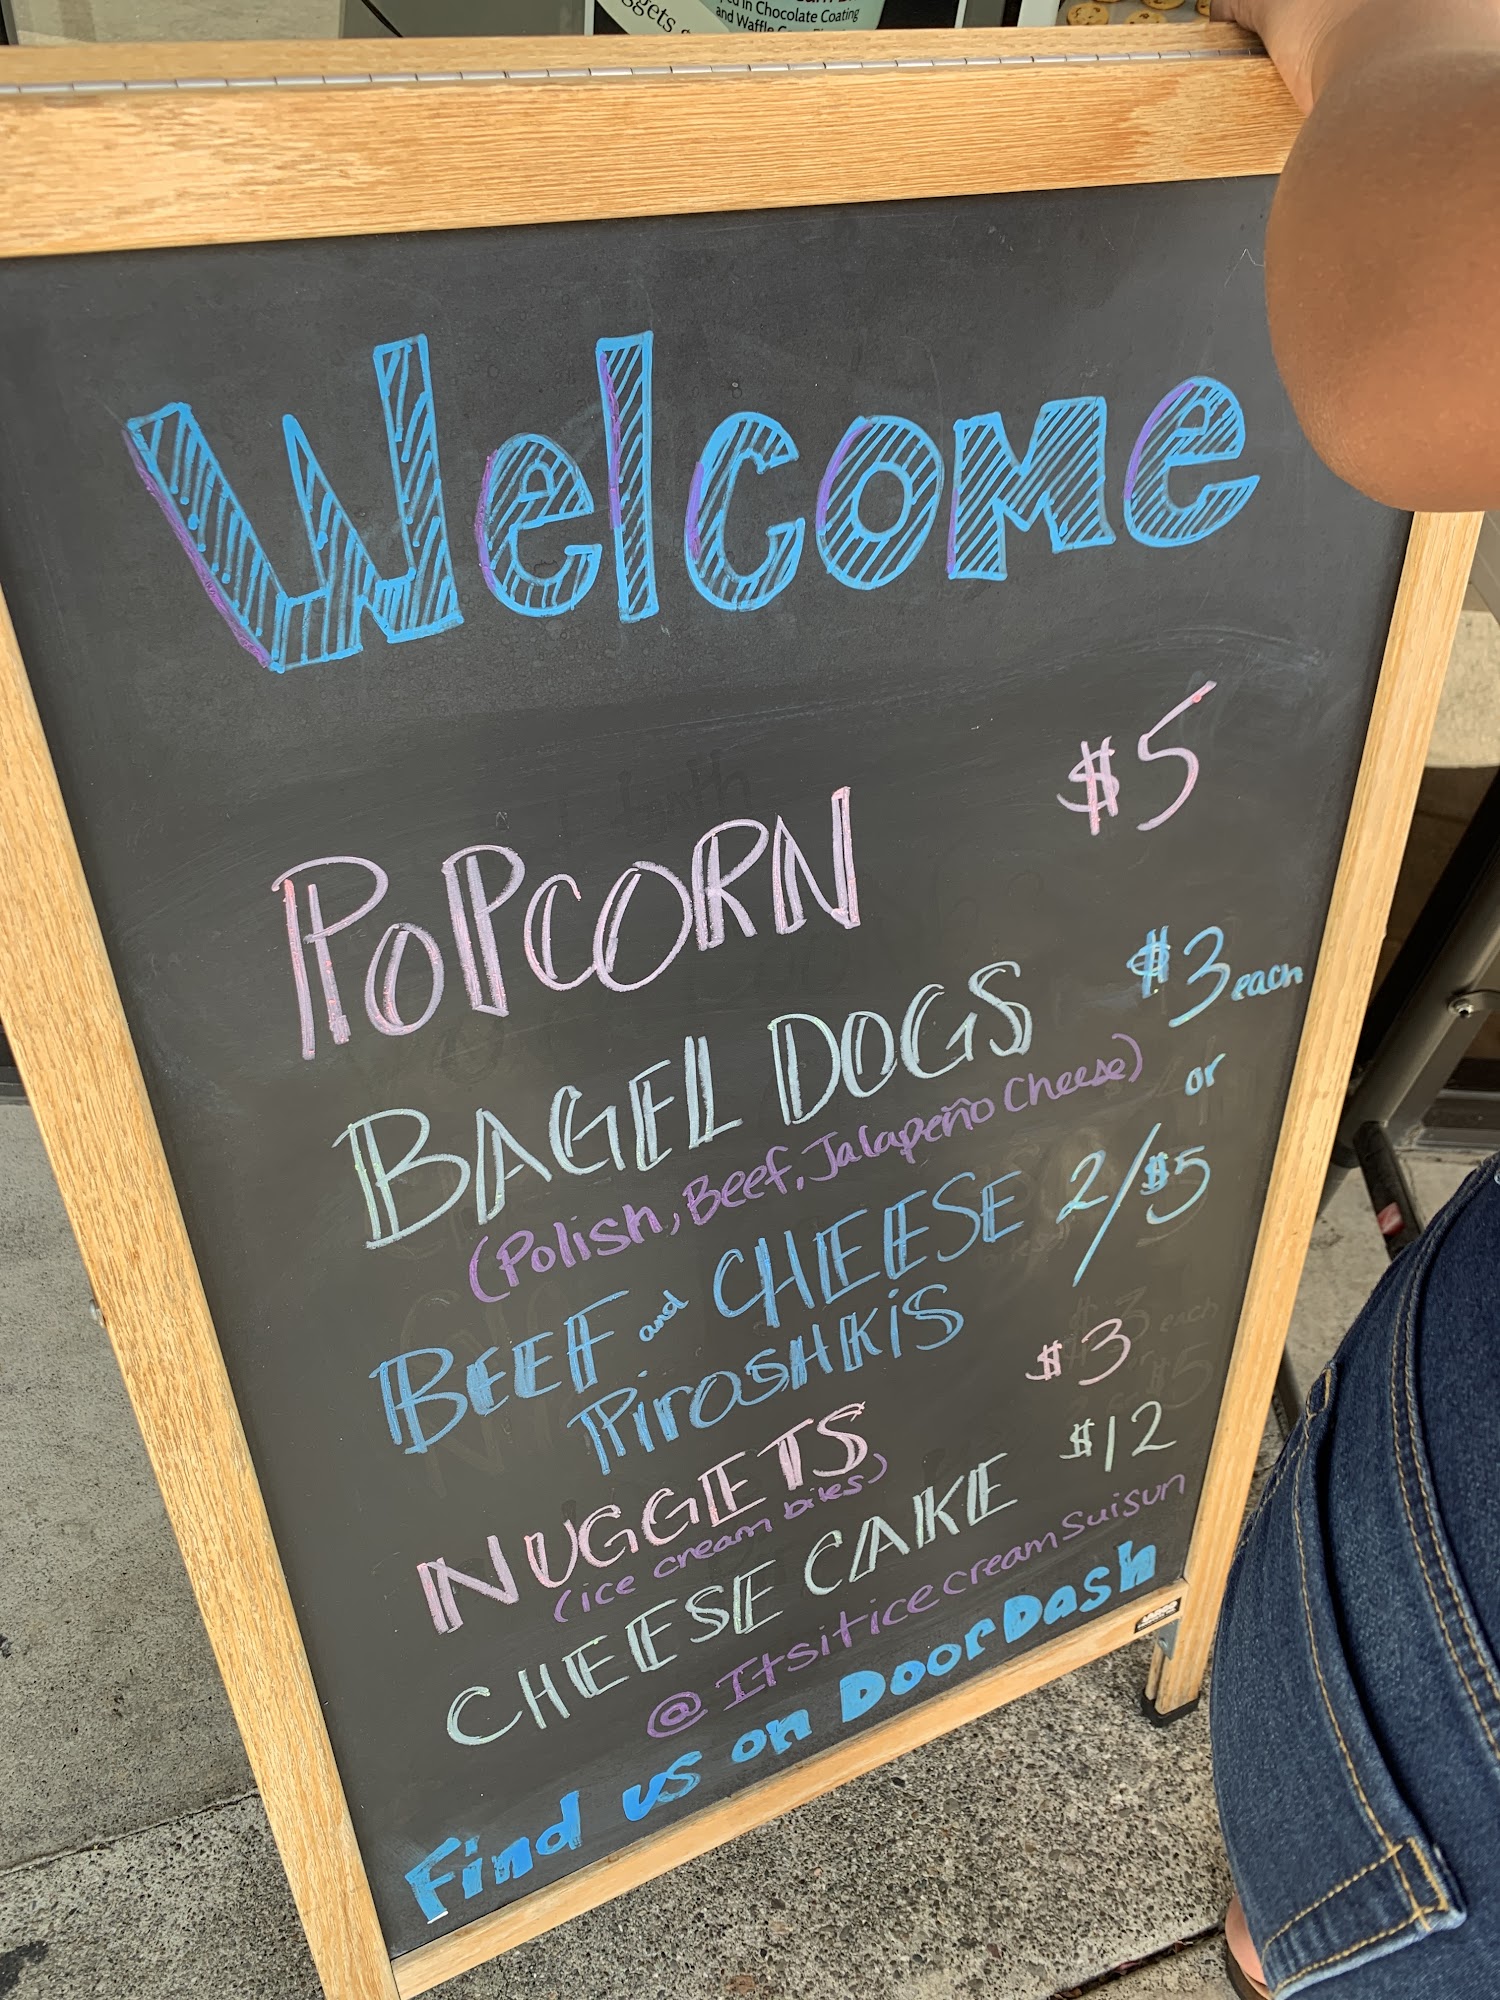 in Chocolate Coating
and Waffle
Welcome
POPCORN $5
BAGEL DOGS $3 each
(Polish, Beef, Jalapeño Cheese) or
BEEF and CHEESE 2/$5
PiROSHKiS
NUGGETS $3
(ice cream bites)
CHEESE CAKE $12
@ Itsiticecreamsuisun
Find us on DoorDash